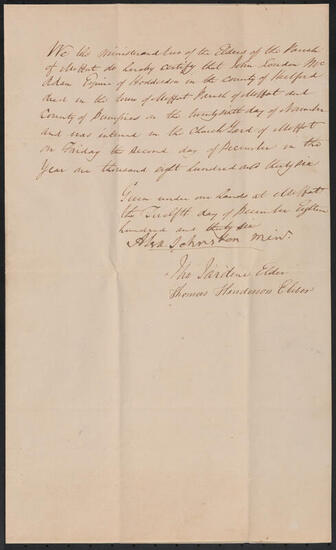 We the Minister and two of the Elders of the Parish
of Moffat do hereby certify that John Loudon Mc
Adam Esquire of Hoddesdon in the County of Hertford
died in the town of Moffat Parish of Moffat and
County of Dumfries on the twenty sixth day of November
and was interred in the Church Yard of Moffat
on Friday the second day of December in the
Year one thousand eight hundred and thirty six
Given under our hands at Moffat
the Twelfth day of December Eighteen
hundred and thirty six
Alex Johnston Minr.
Jas Jardine Elder
Thomas Henderson Elder